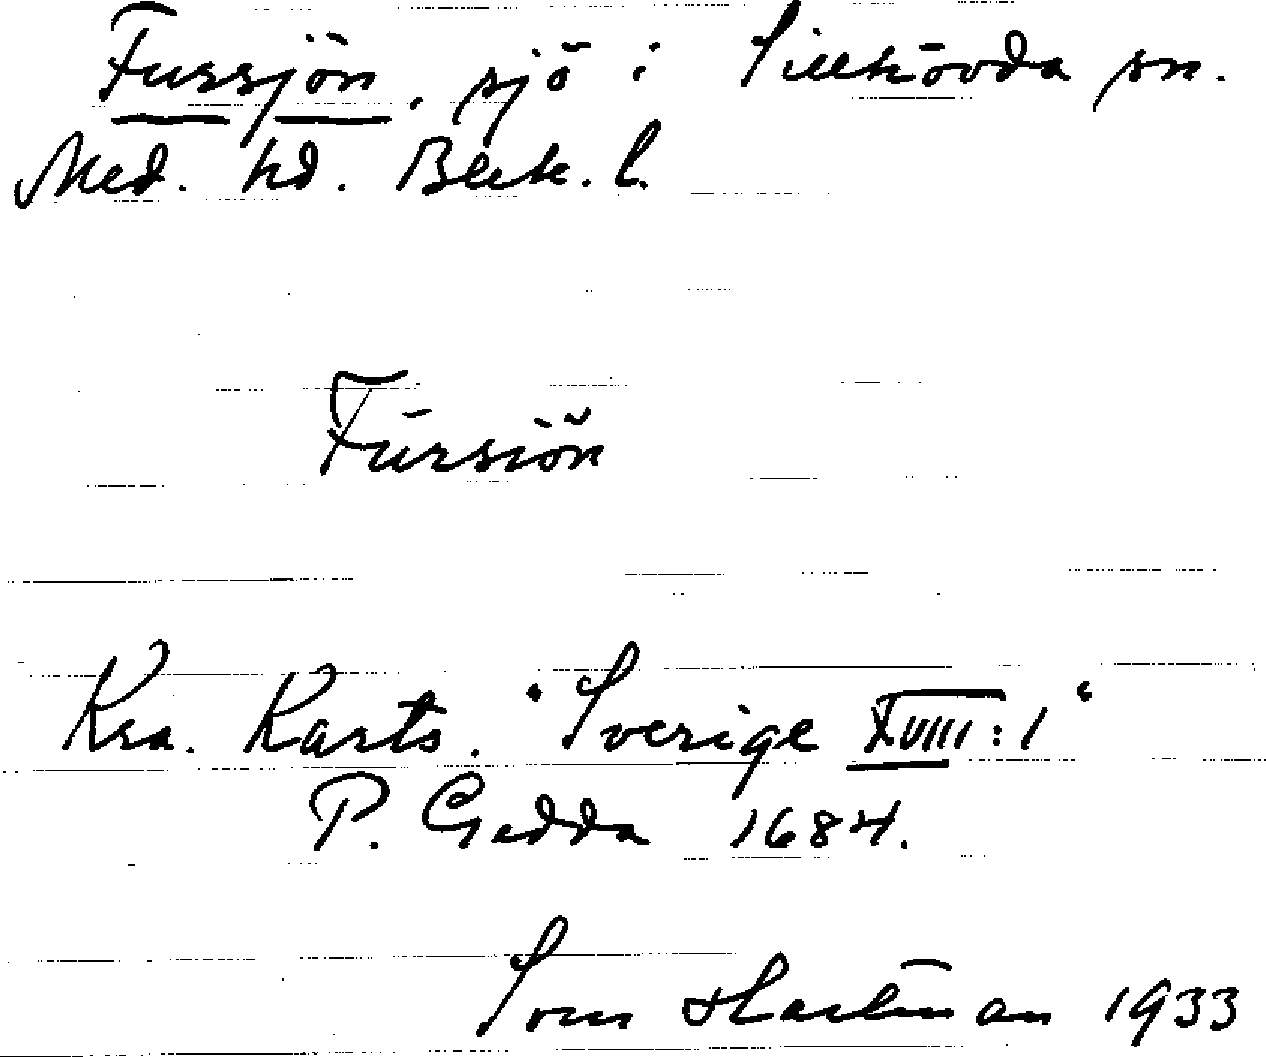 Fursjön, sjö i Sillhövda sn.
Med. hd. Blek. l.
Fursiön
Kra. Karts. "Sverige XVIII:1"
P. Gedda 1684.
Sven Hartman 1933